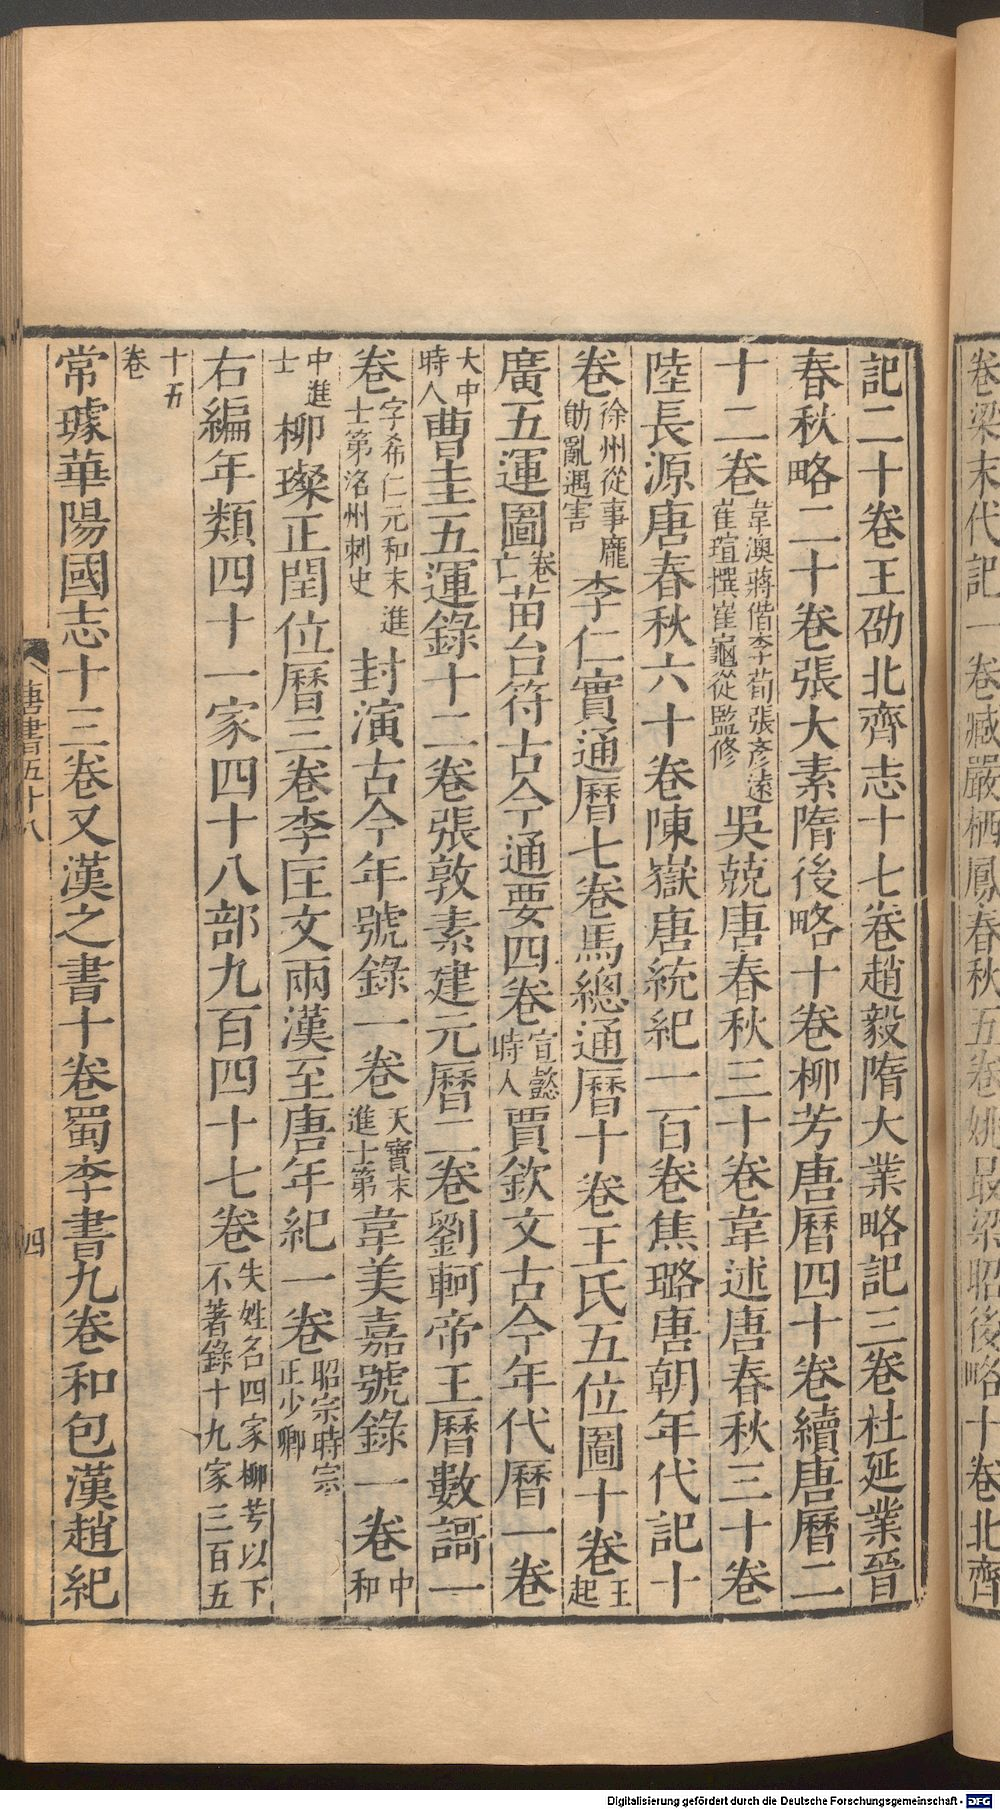 卷梁末代記一卷臧嚴栖鳳春秋五卷姚最梁昭後略十卷北齊
記二十卷王劭北齊志十七卷趙毅隋大業略記三卷杜延業晉
春秋略二十卷張大素隋後略十卷柳芳唐曆四十卷續唐曆二
十二卷韋澳蔣偕李荀張彥遠崔瑄撰崔龜從監修吳兢唐春秋三十卷韋述唐春秋三十卷
陸長源唐春秋六十卷陳嶽唐統紀一百卷焦璐唐朝年代記十
卷徐州從事龐勛亂遇害李仁實通曆七卷馬總通曆十卷王氏五位圖十卷王起
廣五運圖卷亡苗台符古今通要四卷宣懿時人賈欽文古今年代曆一卷
大中時人曹圭五運錄十二卷張敦素建元曆二卷劉軻帝王曆數謌一
卷字希仁元和末進士第洺州刺史封演古今年號錄一卷天寶末進士第韋美嘉號錄一卷中和
中進士柳璨正閏位曆三卷李匡文兩漢至唐年紀一卷昭宗時宗正少卿
右編年類四十一家四十八部九百四十七卷失姓名四家柳芳以下不著錄十九家三百五
十五卷
常璩華陽國志十三卷又漢之書十卷蜀李書九卷和包漢趙紀
唐書五十八
四
Digitalisierung gefördert durch die Deutsche Forschungsgemeinschaft - DFG